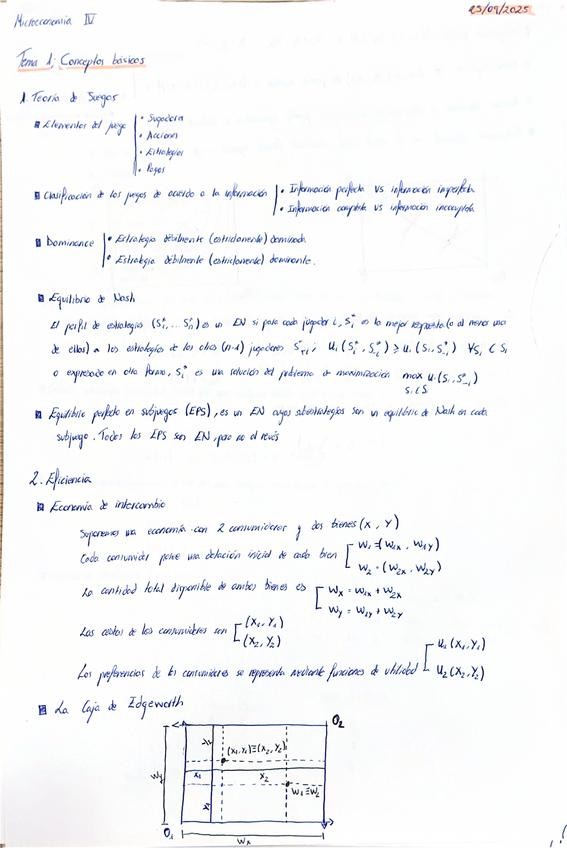 Microeconomía IV
23/09/2025
Tema 1: Conceptos básicos
1. Teoría de Juegos
Elementos del juego
• Jugadores
• Acciones
• Estrategias
• Pagos
Clasificación de los juegos de acuerdo a la información
• Información perfecta vs información imperfecta
• Información completa vs información incompleta
Dominance
• Estrategia débilmente (estrictamente) dominada
• Estrategia débilmente (estrictamente) dominante.
Equilibrio de Nash
El perfil de estrategias (S₁*, ... Sₙ*) es un EN si para cada jugador i, Sᵢ* es la mejor respuesta (o al menos una
de ellas) a las estrategias de los otros (n-1) jugadores S₋ᵢ*; Uᵢ(Sᵢ*, S₋ᵢ*) ≥ Uᵢ(Sᵢ, S₋ᵢ*) ∀Sᵢ ∈ Sᵢ
o expresado en otra forma, Sᵢ* es una solución del problema de maximización max Uᵢ(Sᵢ, S₋ᵢ*)
Sᵢ ∈ Sᵢ
Equilibrio perfecto en subjuegos (EPS), es un EN cuyas subestrategias son un equilibrio de Nash en cada
subjuego. Todos los EPS son EN, pero no al revés
2. Eficiencia
Economía de intercambio
Suponemos una economía con 2 consumidores y dos bienes (X, Y)
Cada consumidor posee una dotación inicial de cada bien
W₁ = (W₁ₓ, W₁Y)
W₂ = (W₂ₓ, W₂Y)
La cantidad total disponible de ambos bienes es
Wₓ = W₁ₓ + W₂ₓ
WY = W₁Y + W₂Y
Las cestas de los consumidores son
(X₁, Y₁)
(X₂, Y₂)
Las preferencias de los consumidores se representa mediante funciones de utilidad
U₁(X₁, Y₁)
U₂(X₂, Y₂)
La Caja de Edgeworth
O₂
Y₂
(X₁, Y₁) ≡ (X₂, Y₂)
WY
X₁
X₂
W₁ ≡ W₂
Y₁
O₁
Wₓ